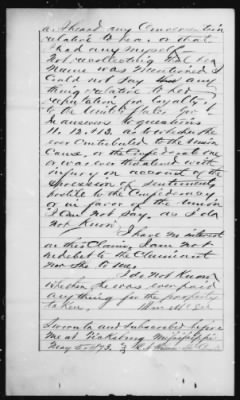 I heard any Conversation
relative to him, or that
had any myself.
Not recollecting that his
name was mentioned I
could not say any
thing relative to his
reputation for loyalty
to the United States, for
he answers to questions
11. 12. &13. as to whether he
ever contributed to the Union
Cause, or the Confederate one
or was ever threatened with
injury on account of the
expression of sentiments
hostile to the Confederacy
or in favor of the Union
I can not say, as I do
not know.
I have no interest
in this Claim, I am not
related to the Claimant
nor she to me.
I do not know
whether he was ever paid
any thing for the property
taken.
Sworn to and subscribed before
me at Vicksburg Mississippi
May